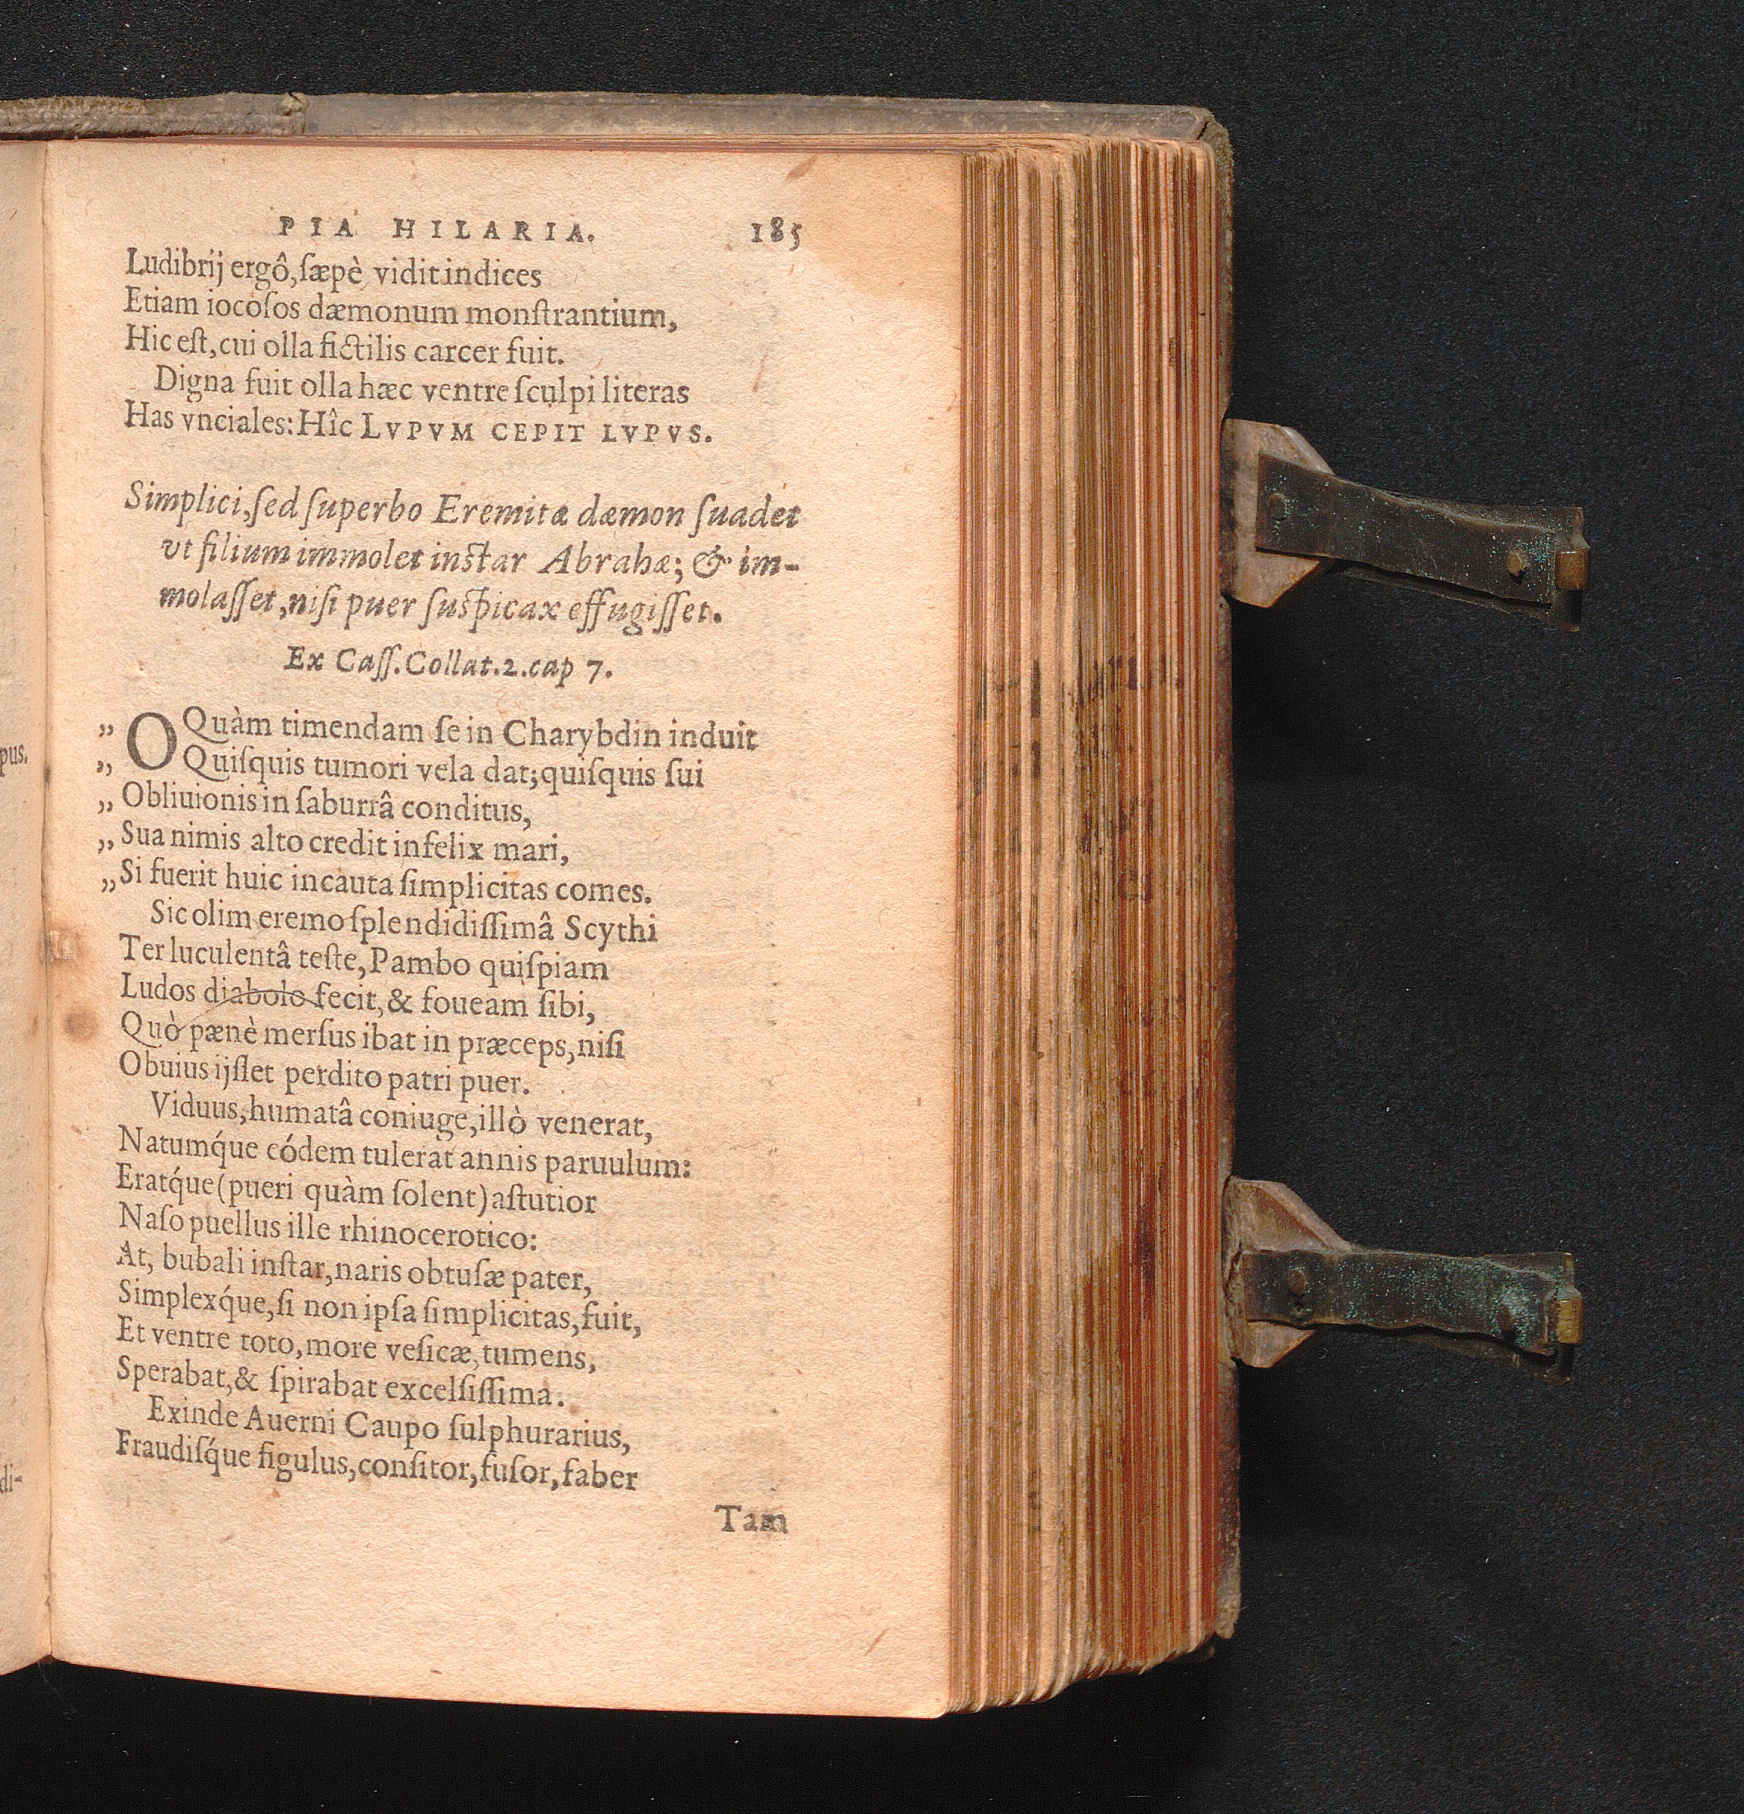 PIA HILARIA. 185
Ludibrij ergô, ſæpè vidit indices
Etiam iocoſos dæmonum monſtrantium,
Hic eſt, cui olla fictilis carcer fuit.
Digna fuit olla hæc ventre ſculpi literas
Has vnciales: Hîc LVPVM CEPIT LVPVS.
Simplici, ſed ſuperbo Eremitæ dæmon ſuadet
vt filium immolet inſtar Abrahæ; & im-
molaſſet, niſi puer ſuſpicax effugiſſet.
Ex Caſſ. Collat. 2. cap 7.
„ O Quàm timendam ſe in Charybdin induit
„ Quiſquis tumori vela dat; quiſquis ſui
„ Obliuionis in ſaburrâ conditus,
„ Sua nimis alto credit infelix mari,
„ Si fuerit huic incauta ſimplicitas comes.
Sic olim eremo ſplendidiſſimâ Scythi
Ter luculentâ teſte, Pambo quiſpiam
Ludos diabolo fecit, & foueam ſibi,
Quò pænè merſus ibat in præceps, niſi
Obuius ijſſet perdito patri puer.
Viduus, humatâ coniuge, illò venerat,
Natumq́ue eódem tulerat annis paruulum:
Eratq́ue (pueri quàm ſolent) aſtutior
Naſo puellus ille rhinocerotico:
At, bubali inſtar, naris obtuſæ pater,
Simplexq́ue, ſi non ipſa ſimplicitas, fuit,
Et ventre toto, more veſicæ, tumens,
Sperabat, & ſpirabat excelſiſſima.
Exinde Auerni Caupo ſulphurarius,
Fraudiſq́ue figulus, conſitor, fuſor, faber
Tam
pus.
di-